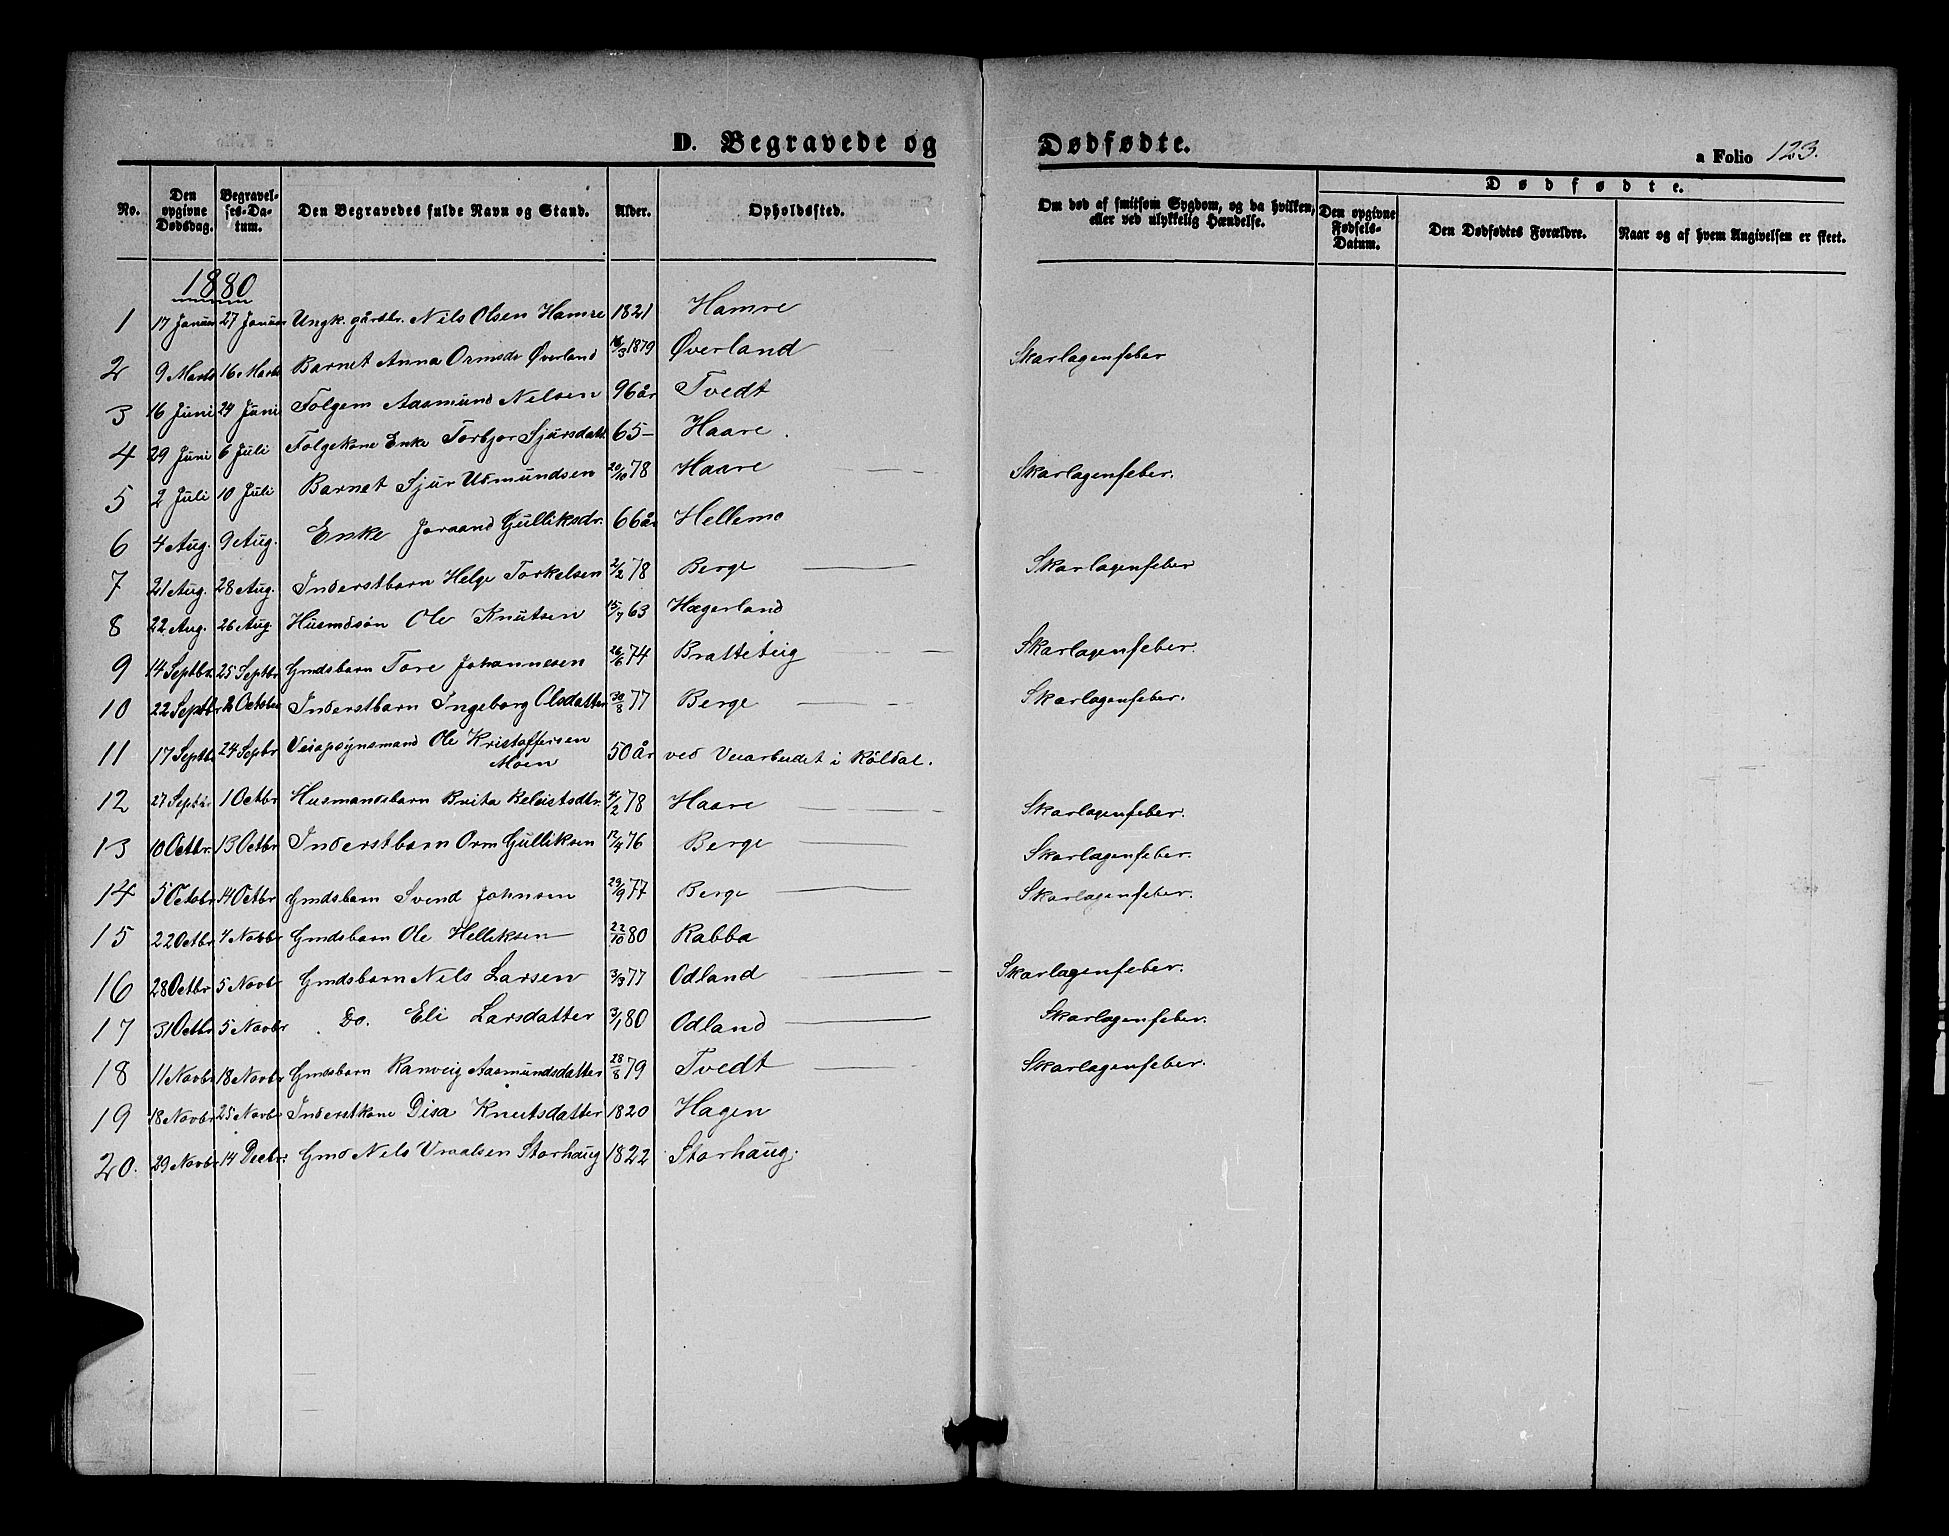 D. Begravede og Dødfødte.
a Folio 123.
No. Den opgivne Dødsdag. Begravelses-Datum. Den Begravedes fulde Navn og Stand. Alder. Opholdssted. Om død af smitsom Sygdom, og da hvilken, eller ved ulykkelig Hændelse. Dødfødte. Den opgivne Fødsels-Datum. Den Dødfødtes Forældre. Naar og af hvem Angivelsen er skeet.
1880
1 17 Januar 27 Januar Ungk. gårdbr. Nils Olsen Hamre 1821 Hamre
2 9 Marts 16 Marts Barnet Anna Ormsdr Øverland 16/3 1879 Øverland Skarlagenfeber
3 16 Juni 24 Juni Folgem Aasmund Nelsen 96 år Tvedt
4 29 Juni 6 Juli Folgekone Enke Torbjor Sjursdatt. 65 - Haare.
5 2 Juli 10 Juli Barnet Sjur Usmundsen 20/10 78 Haare Skarlagenfeber.
6 4 Aug. 9 Aug. Enke Joraand Gulliksdr. 66 år Hellemo
7 21 Aug. 28 Aug. Inderstbarn Helge Torkelsen 2/2 78 Berge Skarlagenfeber
8 22 Aug. 26 Aug Husmdsøn Ole Knutsen 15/7 63 Hægerland
9 14 Septbr. 25 Septbr Gmdsbarn Tore Johannesen 26/6 74 Bratteteig Skarlagenfeber.
10 22 Septbr 2 October Inderstbarn Ingeborg Olsdatter 30/8 77 Berge Skarlagenfeber.
11 17 Septbr 24 Sepbr Veiopsynsmand Ole Kristoffersen Moen 50 år ved Veiarbeidet i Røldal.
12 27 Septbr 1 Octbr Husmandsbarn Brita Releistsdtr. 4/2 78 Haare Skarlagenfeber.
13 10 Octbr. 13 Octbr Inderstbarn Orm Gulliksen 12/4 76 Berge Skarlagenfeber.
14 5 Octobr 14 Octbr Gmdsbarn Svend Johnsen 29/9 77 Berge Skarlagenfeber.
15 22 Octbr 4 Novbr Gmdsbarn Ole Helliksen 22/10 80 Rabba
16 28 Octbr 5 Novbr Gmdsbarn Nils Larsen 3/3 77 Odland Skarlagenfeber.
17 31 Octbr 5 Novbr Do. Eli Larsdatter 3/1 80 Odland Skarlagenfeber.
18 11 Novbr 18 Novbr Gmdsbarn Ranveig Aasmundsdatter 28/8 79 Tvedt Skarlagenfeber.
19 18 Novbr 25 Novbr Inderstkone Disa Knutsdatter 1820 Hagen
20. 29 Novbr 14 Decbr. Gmd Nels Storhaug 1822 Storhaug.